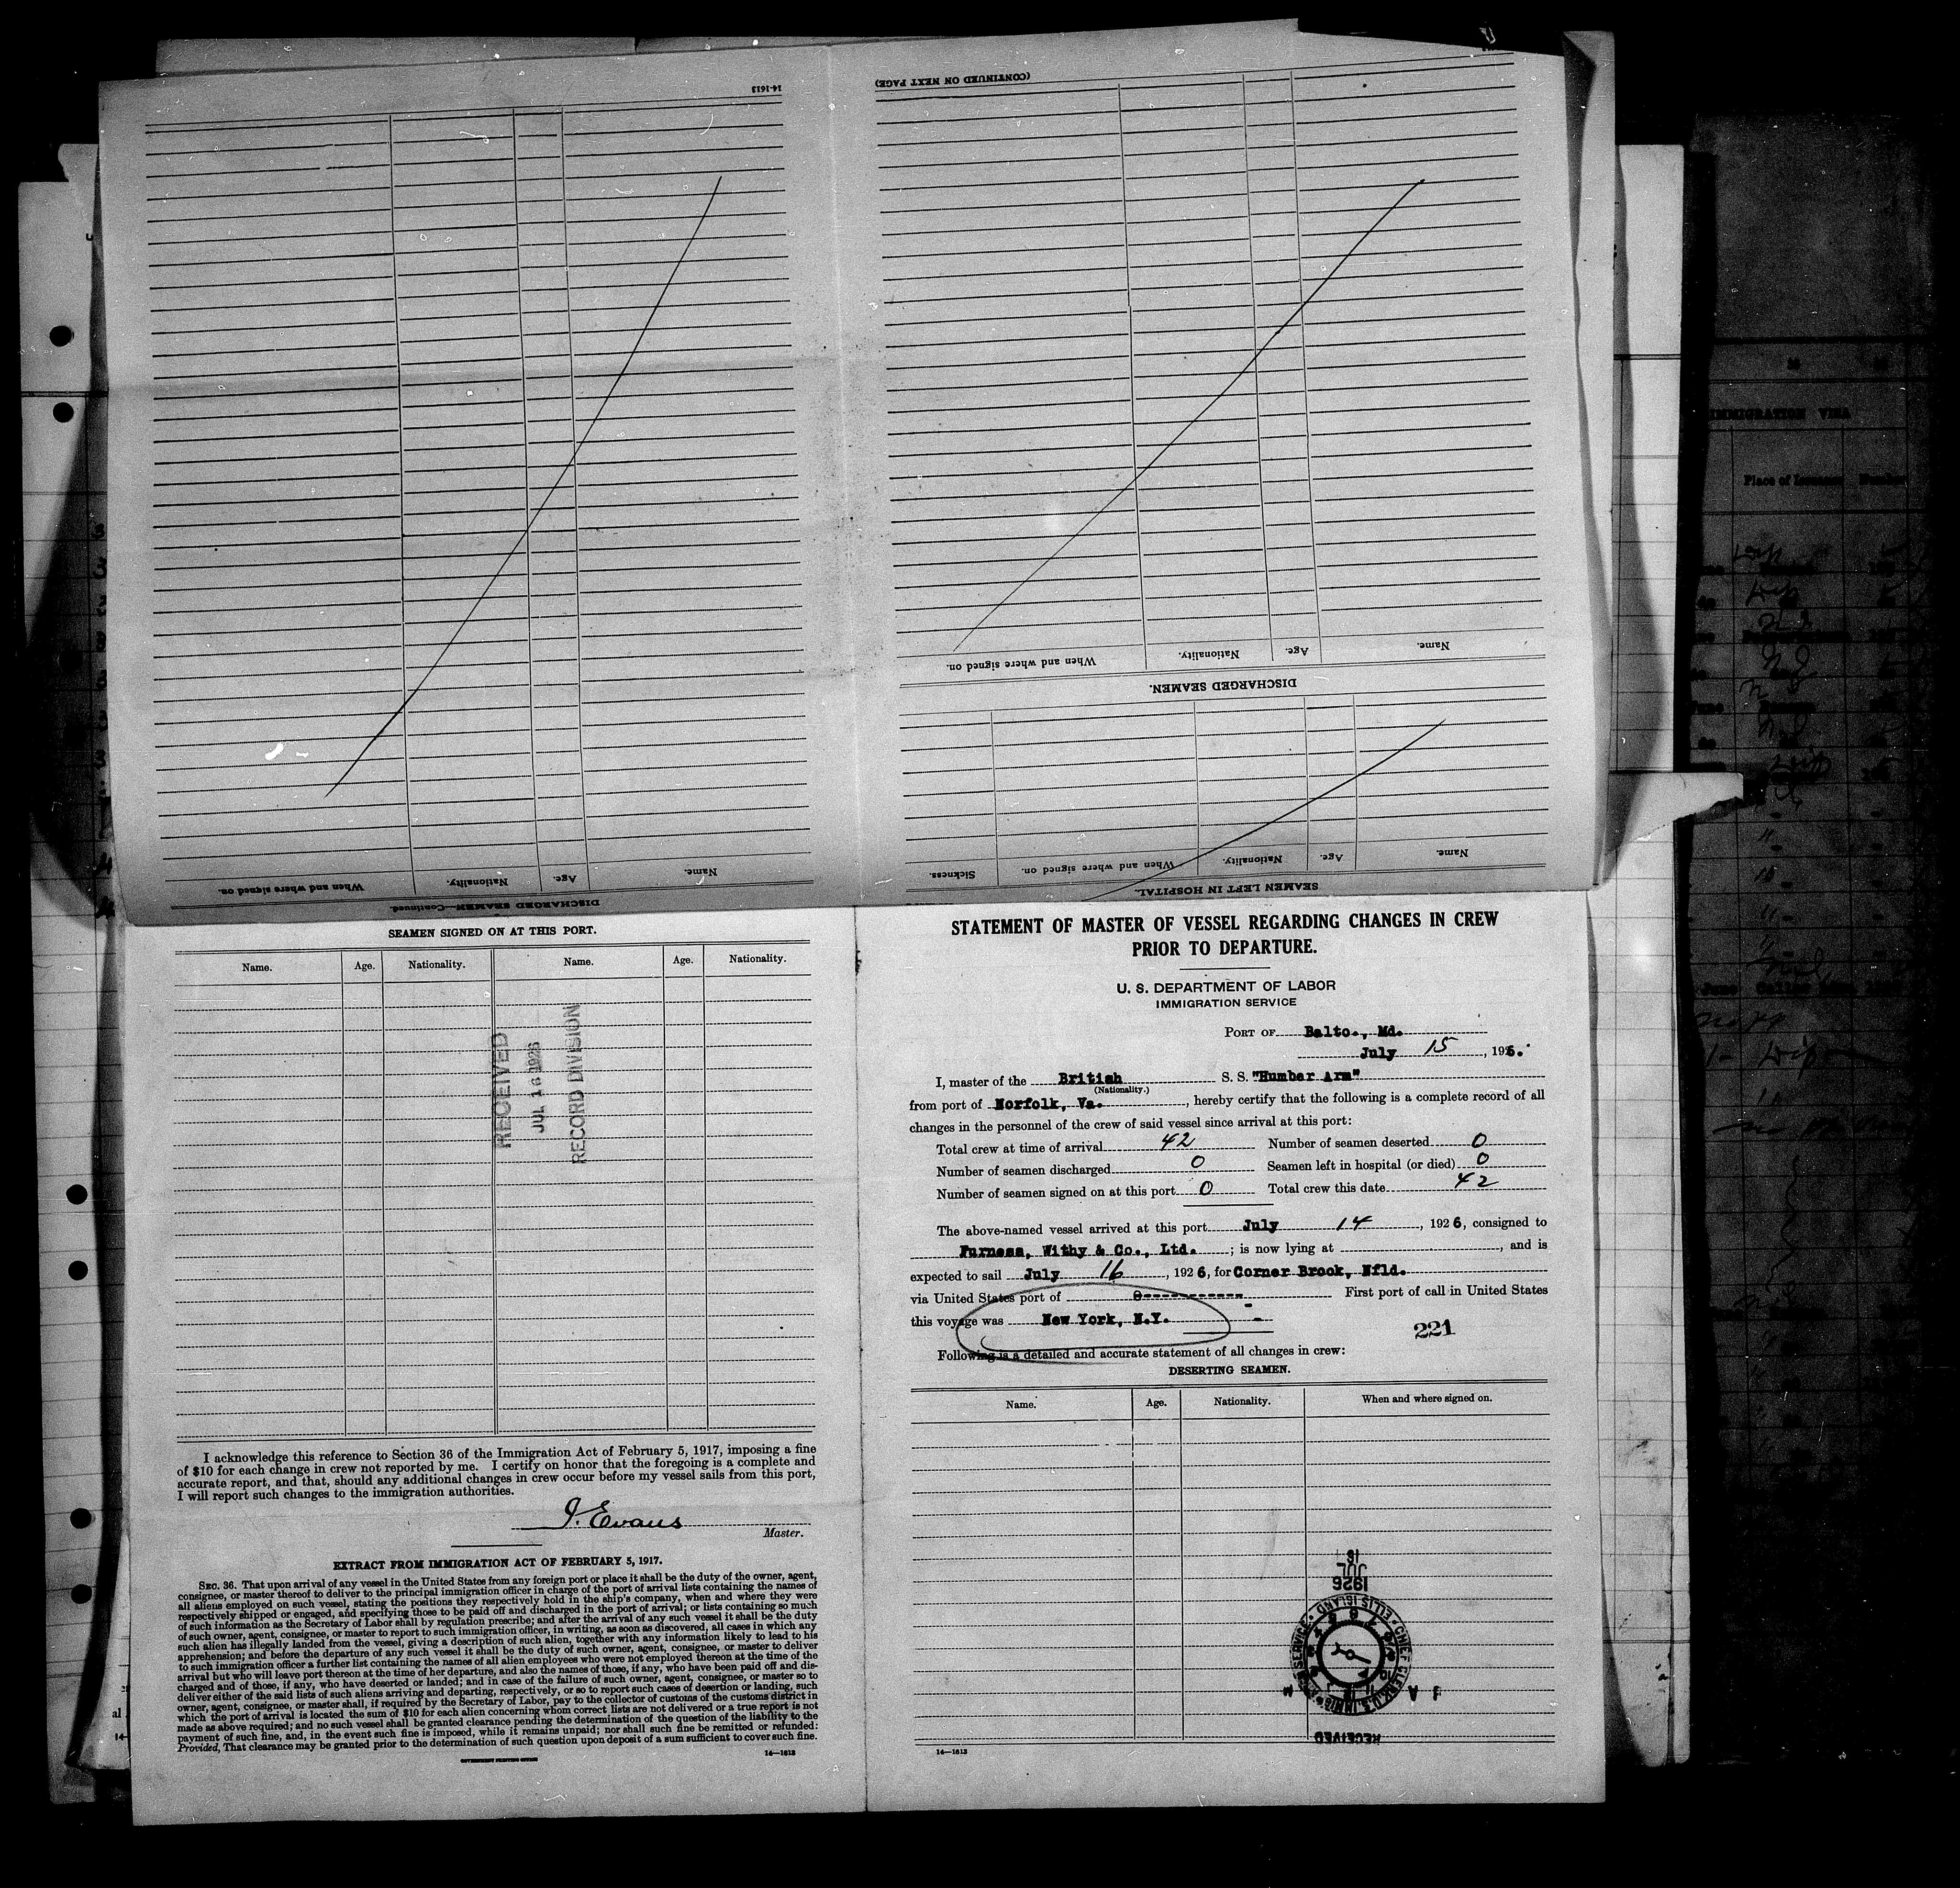 14-1613
(CONTINUED ON NEXT PAGE)
When and where signed on. Nationality. Age. Name.
DISCHARGED SEAMEN—Continued.
When and where signed on. Nationality. Age. Name.
DISCHARGED SEAMEN.
Sickness. When and where signed on. Nationality. Age. Name.
SEAMEN LEFT IN HOSPITAL.
SEAMEN SIGNED ON AT THIS PORT.
Name. Age. Nationality. Name. Age. Nationality.
RECEIVED
JUL 16 1926
RECORD DIVISION
I acknowledge this reference to Section 36 of the Immigration Act of February 5, 1917, imposing a fine
of $10 for each change in crew not reported by me. I certify on honor that the foregoing is a complete and
accurate report, and that, should any additional changes in crew occur before my vessel sails from this port,
I will report such changes to the immigration authorities.
J. Evans
Master.
EXTRACT FROM IMMIGRATION ACT OF FEBRUARY 5, 1917.
SEC. 36. That upon arrival of any vessel in the United States from any foreign port or place it shall be the duty of the owner, agent,
consignee, or master thereof to deliver to the principal immigration officer in charge of the port of arrival lists containing the names of
all aliens employed on such vessel, stating the positions they respectively hold in the ship's company, when and where they were
respectively shipped or engaged, and specifying those to be paid off and discharged in the port of arrival; or lists containing so much
of such information as the Secretary of Labor shall by regulation prescribe; and after the arrival of any such vessel it shall be the duty
of such owner, agent, consignee, or master to report to such immigration officer, in writing, as soon as discovered, all cases in which any
such alien has illegally landed from the vessel, giving a description of such alien, together with any information likely to lead to his
apprehension; and before the departure of any such vessel it shall be the duty of such owner, agent, consignee, or master to deliver
to such immigration officer a further list containing the names of all alien employees who were not employed thereon at the time of the
arrival but who will leave port thereon at the time of her departure, and also the names of those, if any, who have been paid off and dis-
charged and of those, if any, who have deserted or landed; and in case of the failure of such owner, agent, consignee, or master so to
deliver either of the said lists of such aliens arriving and departing, respectively, or so to report such cases of desertion or landing, such
owner, agent, consignee, or master shall, if required by the Secretary of Labor, pay to the collector of customs of the customs district in
which the port of arrival is located the sum of $10 for each alien concerning whom correct lists are not delivered or a true report is not
made as above required; and no such vessel shall be granted clearance pending the determination of the question of the liability to the
payment of such fine, and, in the event such fine is imposed, while it remains unpaid; nor shall such fine be remitted or refunded:
Provided, That clearance may be granted prior to the determination of such question upon deposit of a sum sufficient to cover such fine.
GOVERNMENT PRINTING OFFICE
14—1613
STATEMENT OF MASTER OF VESSEL REGARDING CHANGES IN CREW
PRIOR TO DEPARTURE.
U. S. DEPARTMENT OF LABOR
IMMIGRATION SERVICE
PORT OF Balto., Md.
July 15, 1926.
I, master of the British S. S. "Humber Arm"
(Nationality.)
from port of Norfolk, Va., hereby certify that the following is a complete record of all
changes in the personnel of the crew of said vessel since arrival at this port:
Total crew at time of arrival 42 Number of seamen deserted 0
Number of seamen discharged 0 Seamen left in hospital (or died) 0
Number of seamen signed on at this port 0 Total crew this date 42
The above-named vessel arrived at this port July 14, 1926, consigned to
Furness, Withy & Co., Ltd.; is now lying at , and is
expected to sail July 16, 1926, for Corner Brook, Nfld.
via United States port of 0------------ First port of call in United States
this voyage was New York, N.Y.
221
Following is a detailed and accurate statement of all changes in crew:
DESERTING SEAMEN.
Name. Age. Nationality. When and where signed on.
RECEIVED
CHIEF CLERK, U.S. IMMIG. SERVICE ELLIS ISLAND
1926
JUL
16
14—1613
IMMIGRATION VISA
Place of Issuance Number